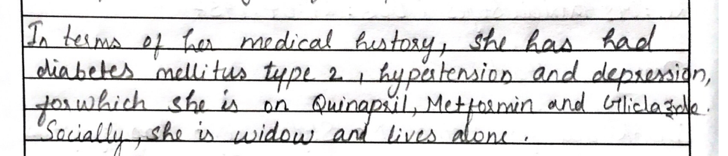 In terms of her medical history, she has had
diabetes mellitus type 2, hypertension and depression,
for which she is on Quinapril, Metformin and Gliclazide.
Socially, she is widow and lives alone.